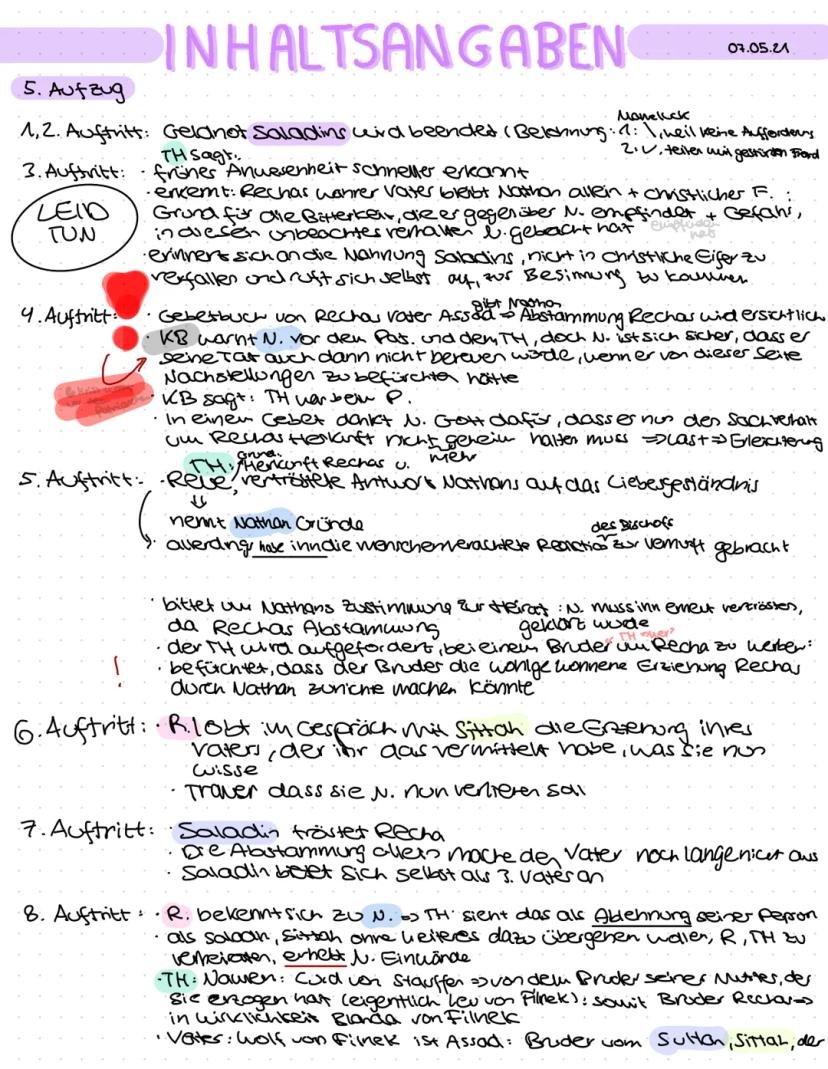 INHALTSANGABEN
07.05.21
5. Aufzug
Mameluck
1,2. Auftritt: Geldnot Saladins wird beendet (Belohnung: 1: \, weil keine Aufforderung
2: ✓, teilen mit gestürztem Freund
TH sagt:
3. Auftritt: · frühes Anwesenheit schneller erkannt
· erkennt: Rechas wahrer Vater bleibt Nathan allein + christlicher F. :
LEID TUN
Grund für die Bitterkeit, die er gegenüber N. empfindet + Gefahr,
in die sein unbeachtes verhalten N. gebracht hat
· erinnert sich an die Mahnung Saladins, nicht in christliche Eifer zu
verfallen und ruft sich selbst auf, zur Besinnung zu kommen
gibt Nathan
4. Auftritt: · Gebetbuch von Rechas Vater Assad ⇒ Abstammung Rechas wird ersichtlich
· KB warnt N. vor dem Pat. und dem TH, doch N. ist sich sicher, dass er
seine Tat auch dann nicht bereuen würde, wenn er von dieser Seite
Nachstellungen zu befürchten hätte
· KB sagt: TH war beim P.
· In einem Gebet dankt N. Gott dafür, dass er nun den Sachverhalt
um Rechas Herkunft nicht geheim halten muss ⇒ Last ⇒ Erleichterung
mehr
TH: Grund: Herkunft Rechas u.
5. Auftritt: · Reue, vertröstete Antwort Nathans auf das Liebesgeständnis
nennt Nathan Gründe
des Bischofs
allerdings habe ihn die menschenverachtete Reaktion zur Vernunft gebracht
· bittet um Nathans Zustimmung zur Heirat : N. muss ihn erneut vertrösten,
da Rechas Abstammung geklärt wurde
"TH über"
· der TH wird aufgefordert, bei einem Bruder um Recha zu werben:
! · befürchtet, dass der Bruder die wohlgewonnene Erziehung Rechas
durch Nathan zunichte machen könnte
6. Auftritt: · R. lobt im Gespräch mit Sittah die Erziehung ihres
Vaters, der ihr das vermittelt habe, was sie nun
wisse
· Trauer dass sie N. nun verlieren soll
7. Auftritt: · Saladin tröstet Recha
· Die Abstammung allein mache den Vater noch lange nicht aus
· Saladin bietet sich selbst als 3. Vater an
8. Auftritt: · R. bekennt sich zu N. ⇒ TH sieht das als Ablehnung seiner Person
· als Saladin, Sittah ohne weiteres dazu übergehen wollen, R, TH zu
verheiraten, erhebt N. Einwände
· TH: Namen: Curd von Stauffen ⇒ von dem Bruder seiner Mutter, der
sie erzogen hat (eigentlich Leu von Filnek): somit Bruder Rechas ⇒
in wirklichkeit Blanda von Filnek
· Vater: Wolf von Filnek ist Assad: Bruder vom Sultan, Sittah, der